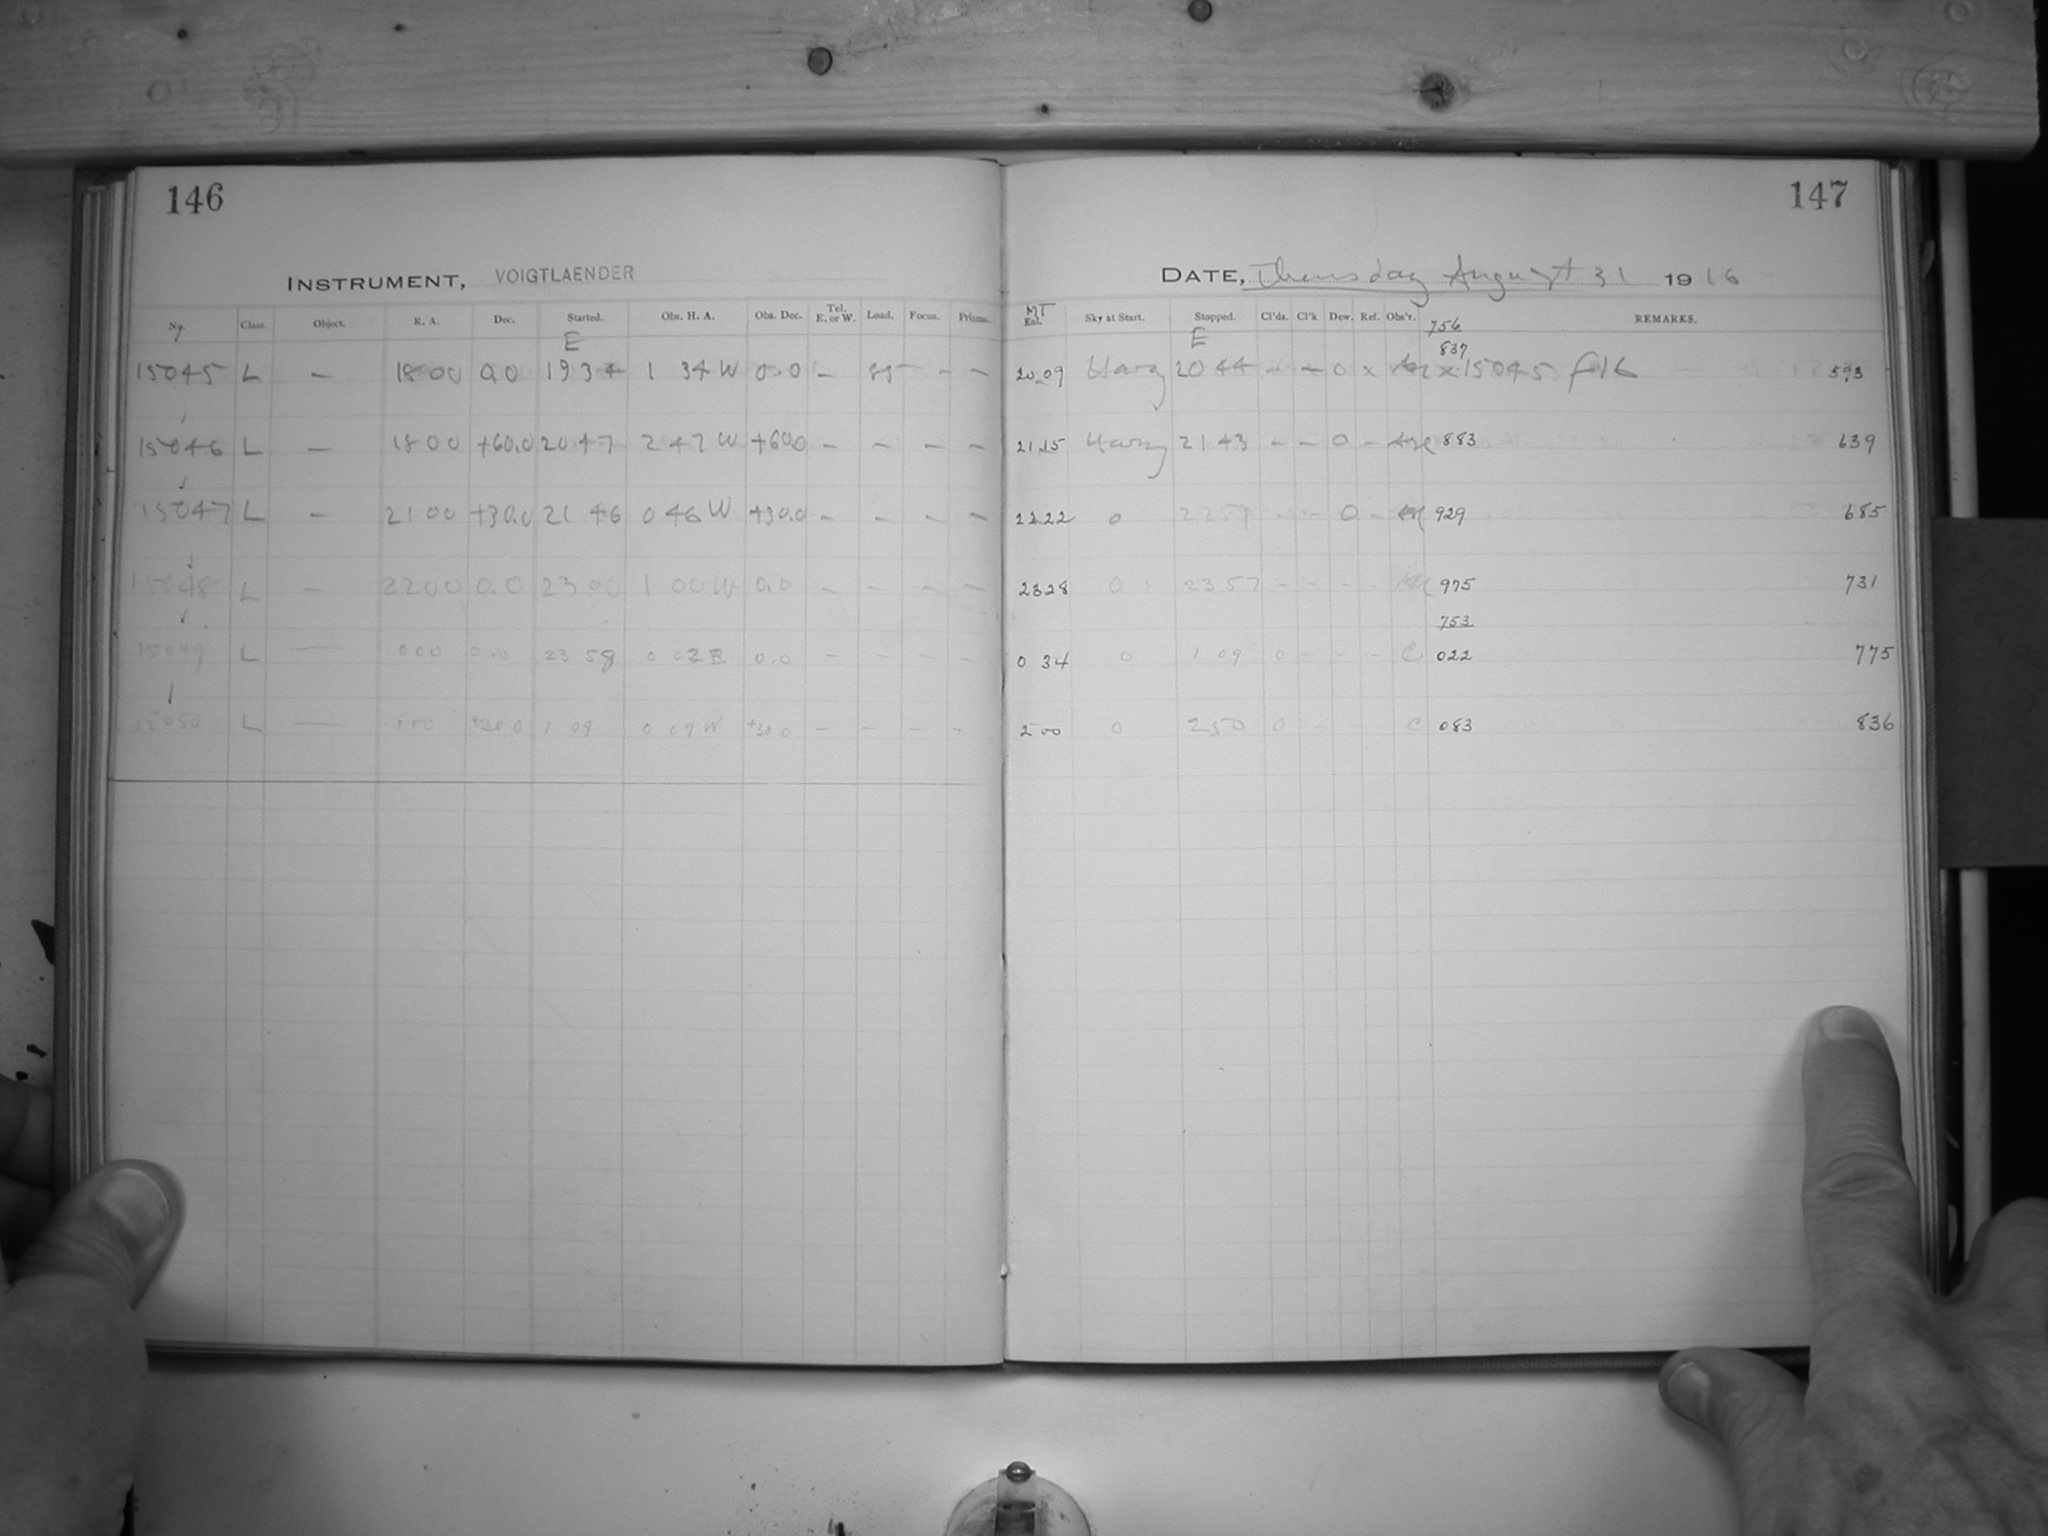 146
INSTRUMENT, VOIGTLAENDER
No. Class. Object. R. A. Dec. Started. Obs. H. A. Obs. Dec. Tel. E. or W. Load. Focus. Prisms.
E
15045 L — 18 00 0.0 19 34 1 34 W 0.0 – – –
15046 L — 18 00 +60.0 20 47 2 47 W +60.0 – – – –
15047 L — 21 00 +30.0 21 46 0 46 W +30.0 – – – –
15048 L — 22 00 0.0 23 00 1 00 W 0.0 – – – –
15049 L — 0 00 0.0 23 58 0 02 E 0.0 – – – –
15050 L — 1 00 +30.0 1 09 0 09 W +30.0 – – – –
147
DATE, Thursday August 31 1916
MT
Exl. Sky at Start. Stopped. Cl'ds. Cl'k Dew. Ref. Obs'r. REMARKS.
E 756
837
20.09 Hazy 20 44 – – 0 x x 15045 f 16 593
21.15 Hazy 21 43 – – 0 – 883 639
22.22 0 22 57 – – 0 – 929 685
23 28 0 23 57 – – – – 975 731
753
0 34 0 1 09 0 – – – C 022 775
2 00 0 2 50 0 – – – C 083 836